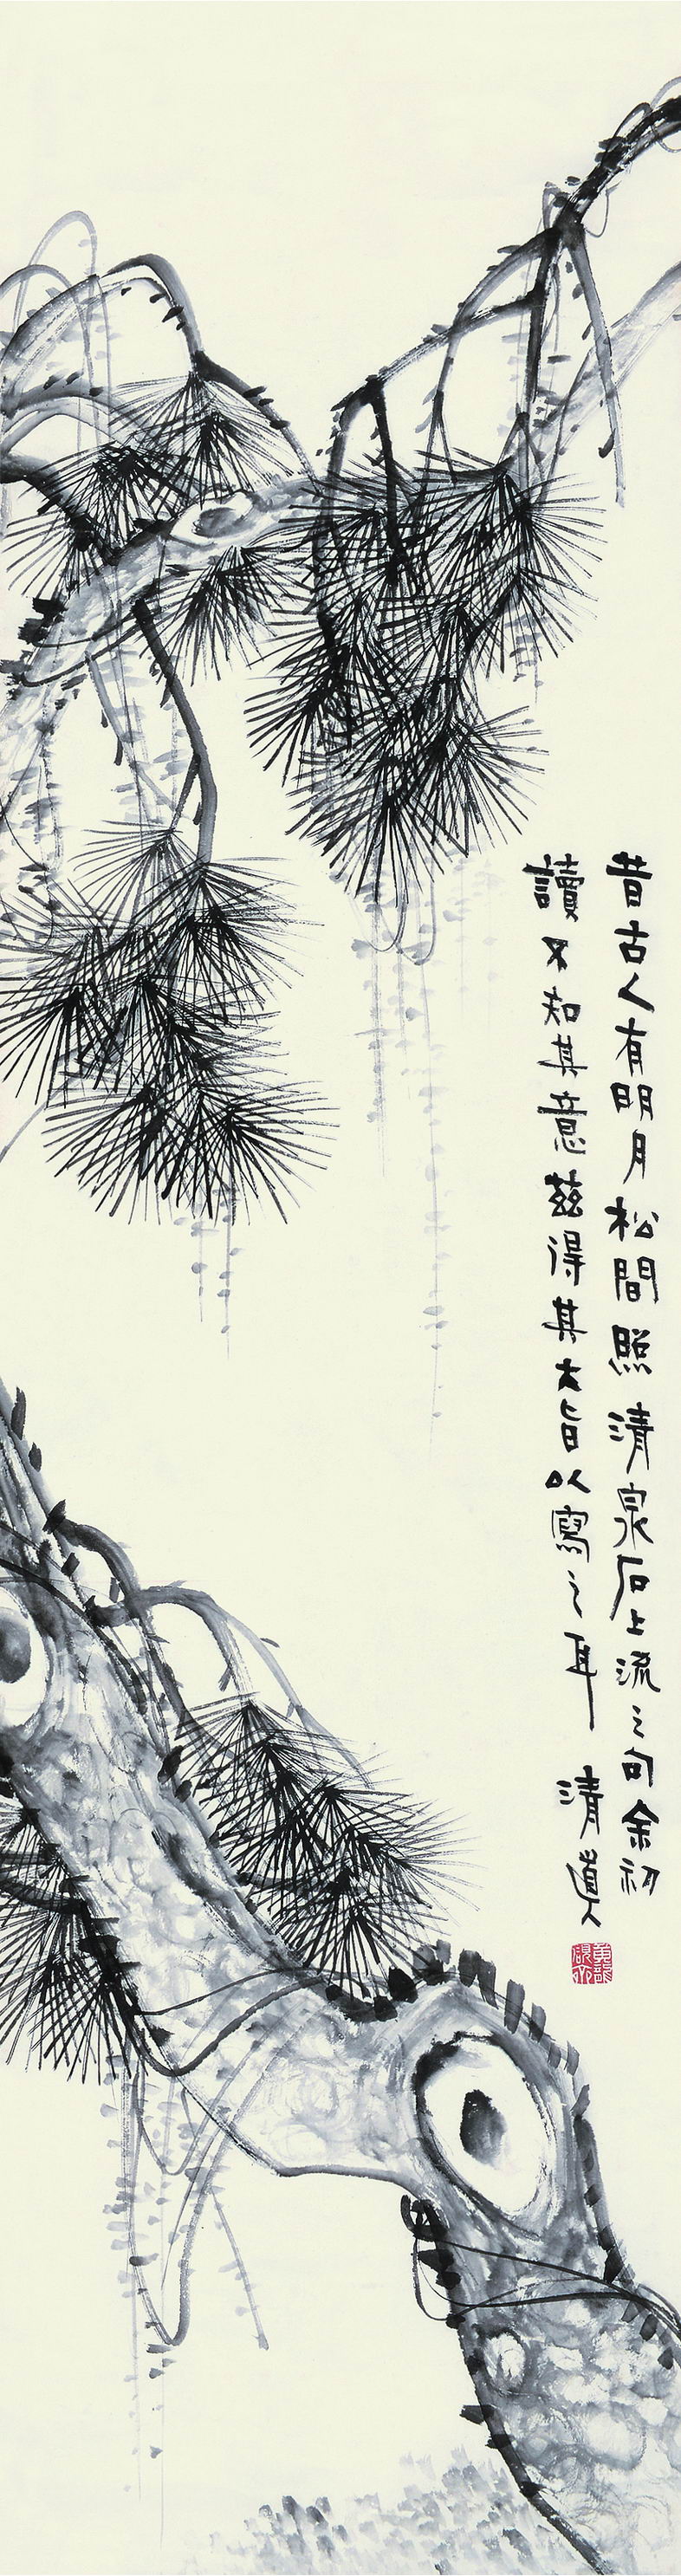 昔古人有明月松間照清泉石上流之句余初
讀不知其意茲得其大旨以寫之耳 清道人